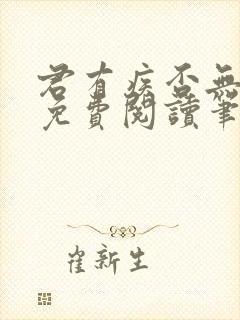 君有疾否無
免費閱讀筆
崔新生